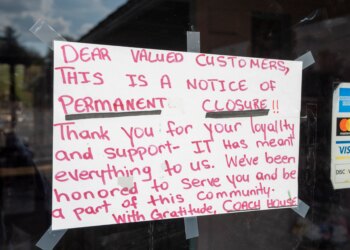 DEAR VALUED CUSTOMERS,
THIS IS A NOTICE OF
PERMANENT CLOSURE!!
Thank you for your loyalty
and support- IT Has meant
everything to us. We've been
honored to serve you and be
a part of this community.
With Gratitude, COACH HOUSE
VISA